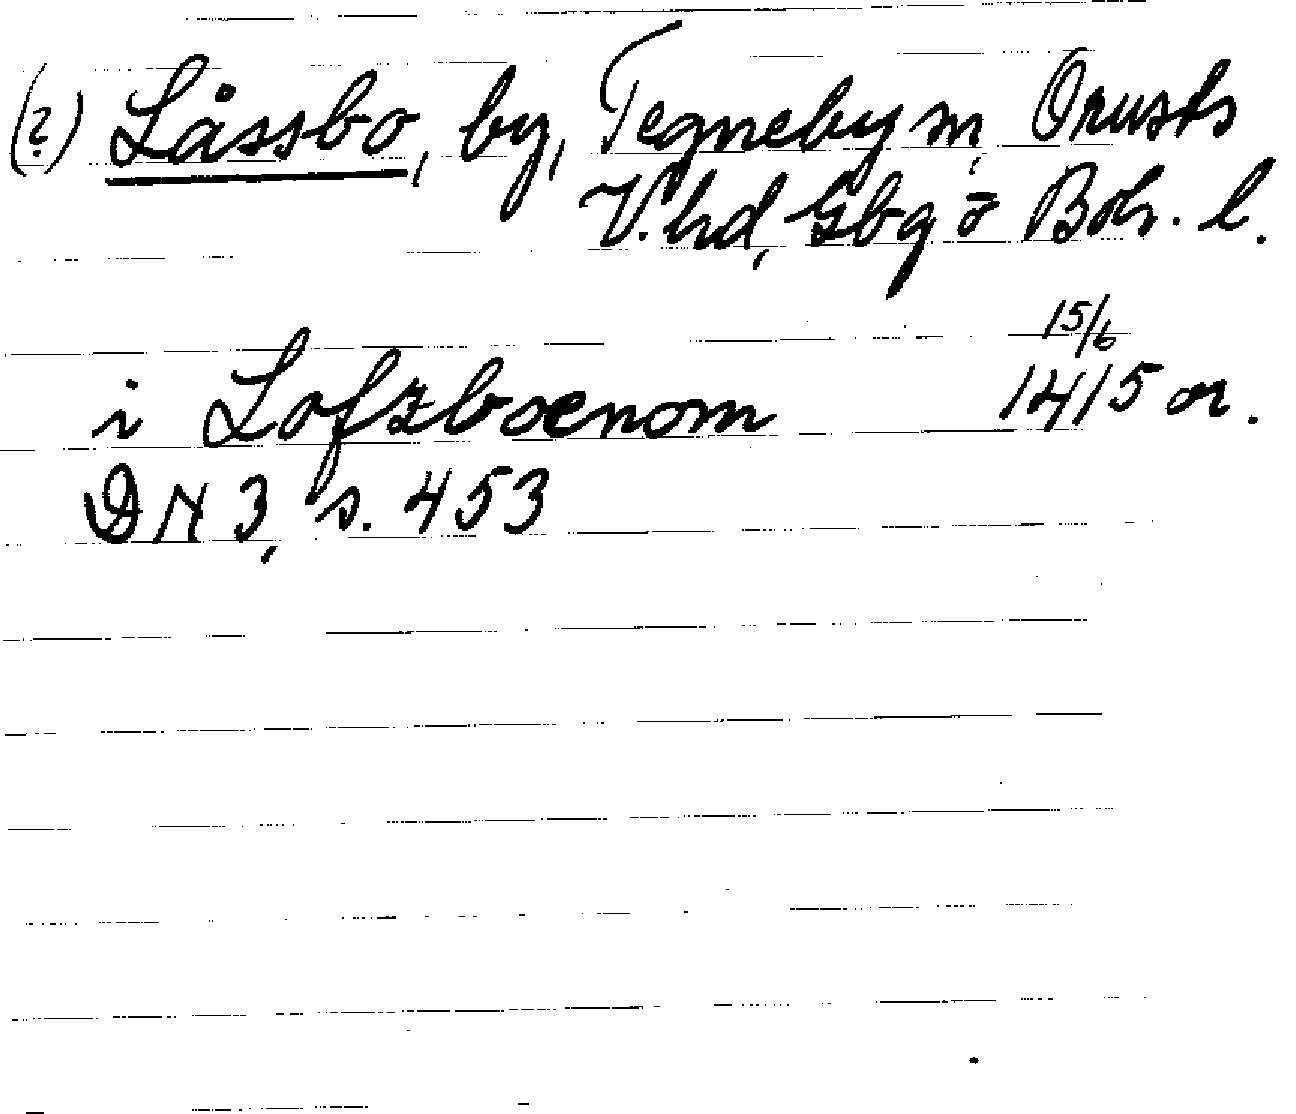 (?) Låssbo, by, Tegneby sn, Orusts
V. hd, Gbg o Boh. l.
15/6
i Lofzboenom 1415 or.
DN 3, s. 453